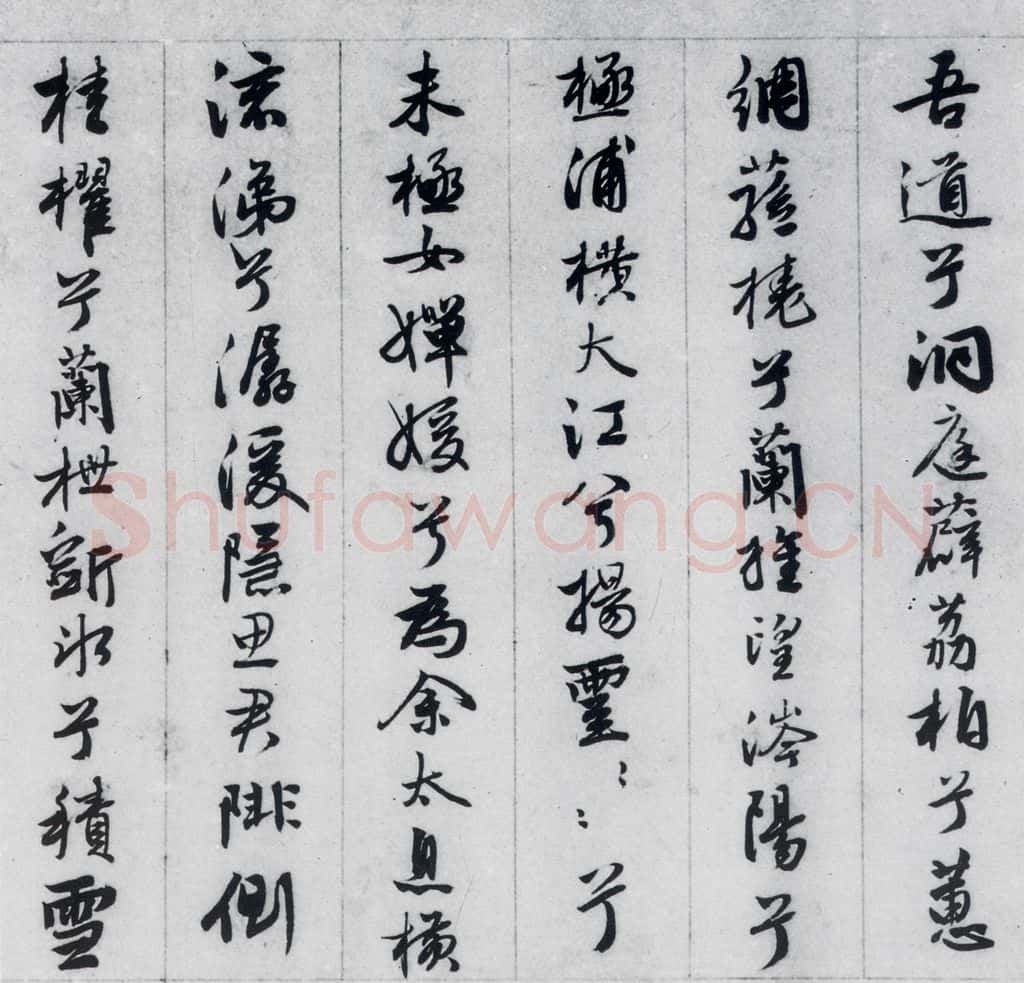 吾道兮洞庭薜荔柏兮蕙
綢蓀橈兮蘭旌望涔陽兮
極浦橫大江兮揚靈〻〻兮
未極女嬋媛兮為余太息橫
流涕兮潺湲隱思君陫側
桂櫂兮蘭枻斲冰兮積雪
Shufawang.CN